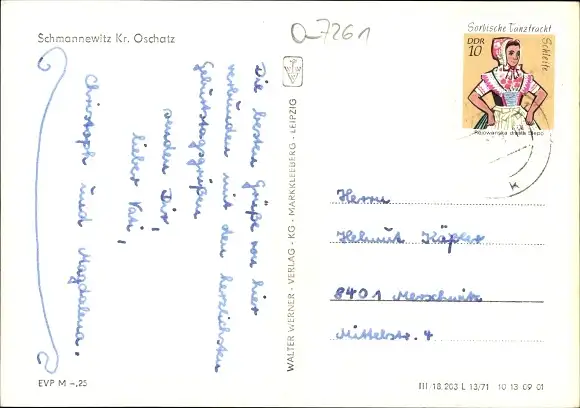 Schmannewitz Kr. Oschatz
a-7261
Die besten Grüße von hier
verbunden mit den herzlichsten
Geburtstagsgrüßen
senden Dir,
lieber Vati,
Christoph und Magdalena.
EVP M –,25
WALTER WERNER - VERLAG - KG - MARKKLEEBERG - LEIPZIG
Sorbische Tanztracht
DDR
10
Schleife
Rejowanska drasta Slepo
K
Herrn
Helmut Käpler
8401 Merschwitz
Mittelstr. 4
III 18 203 L 13/71 10 13 09 01